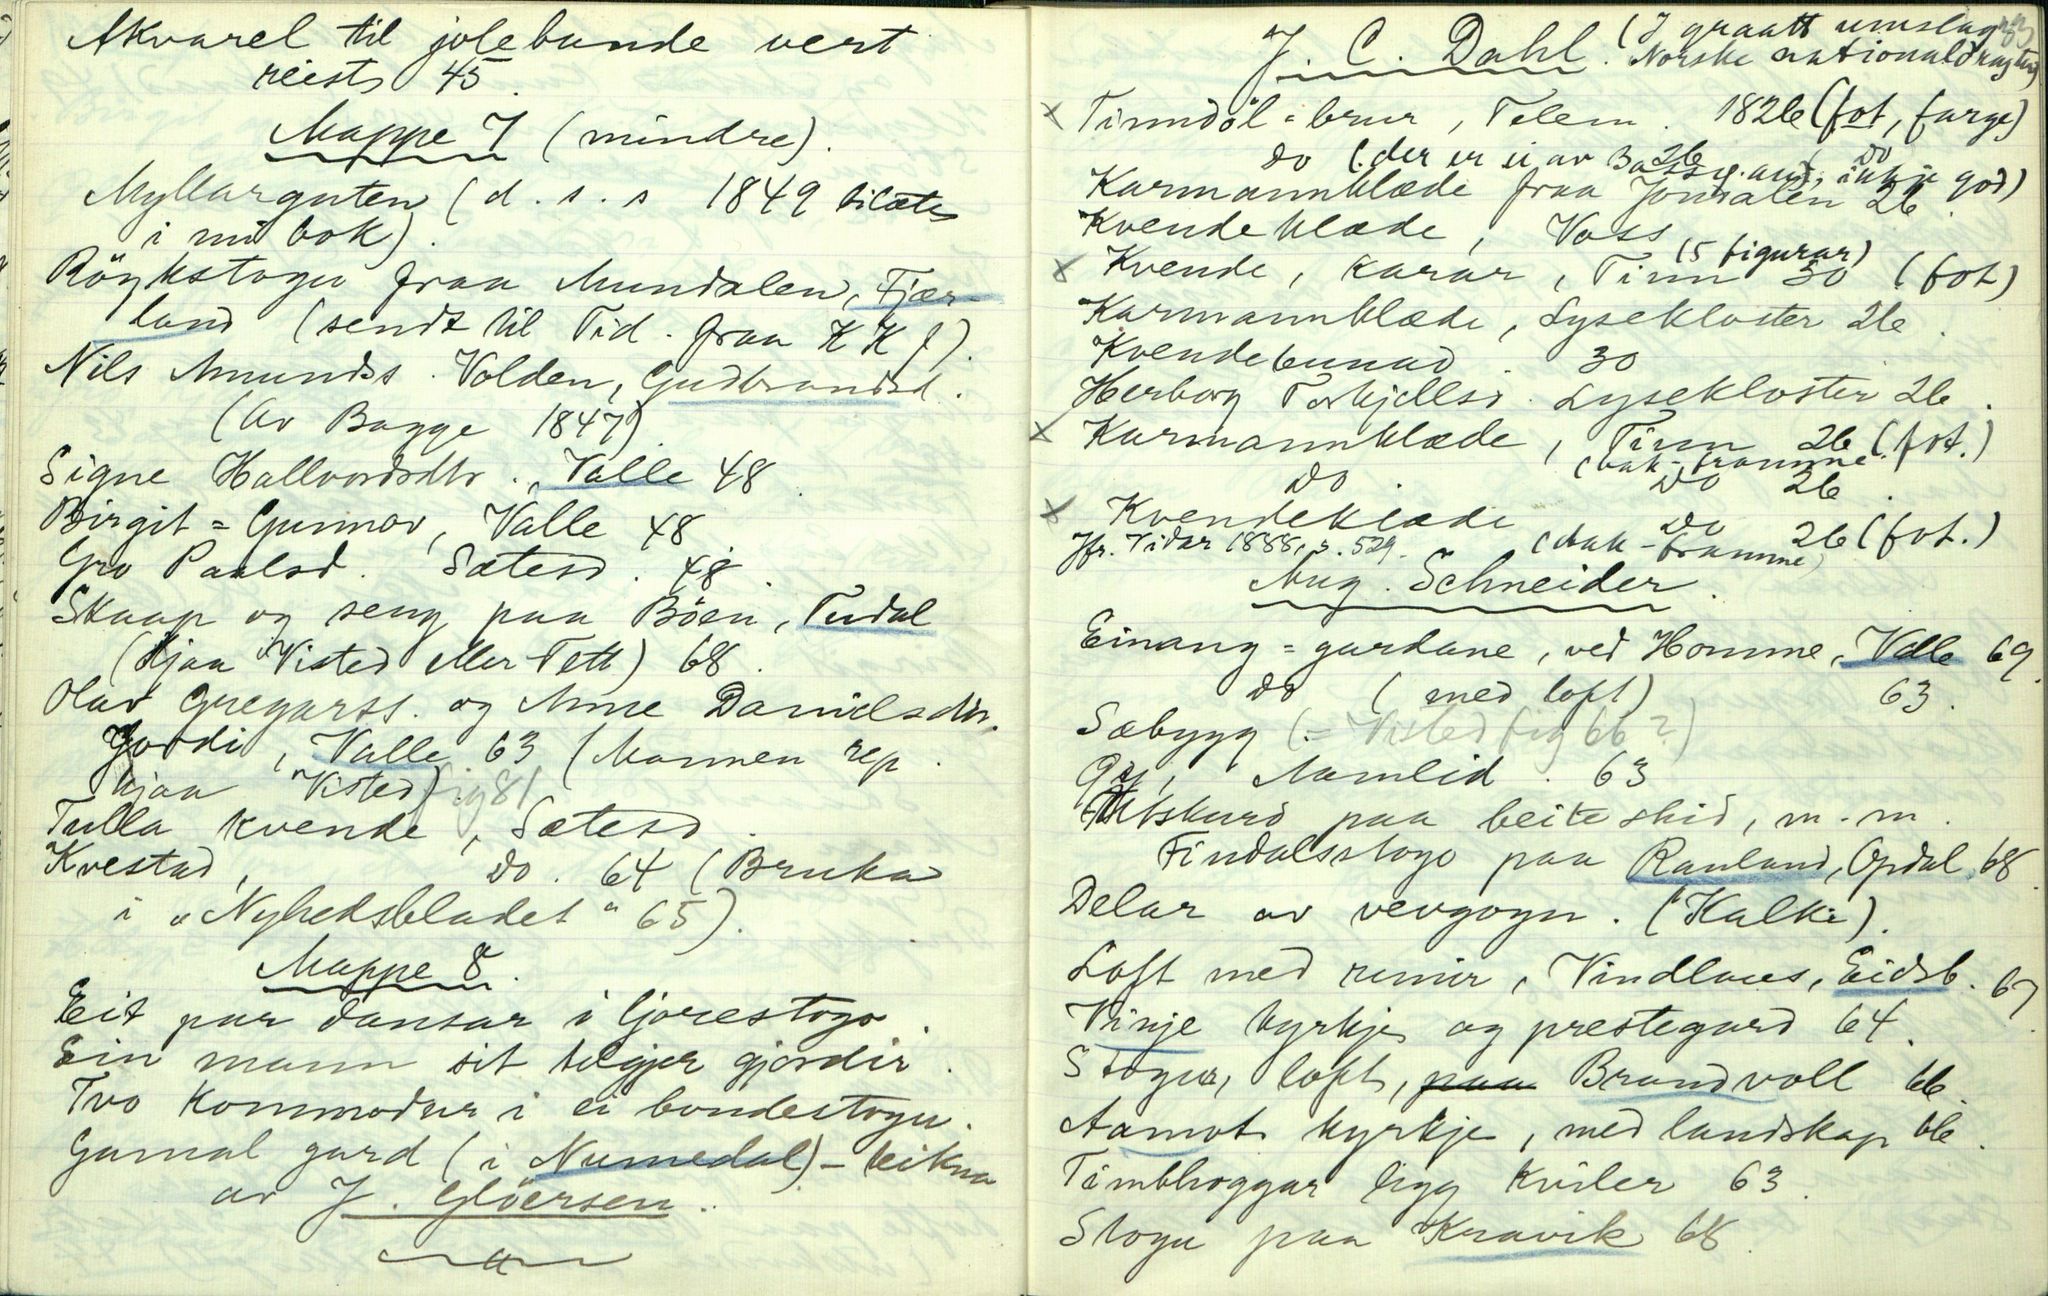 Akvarel til jolebunde vert
reist 45.
Mappe 7 (mindre).
Myllarguten (d. s. s 1849
i mi bok).
Röykstogu fraa Mundalen, Fjær-
land (sendt til Tid. fraa K K f).
Nils Amunds. Volden, Gudbrandsd.
(Av Bagge 1847).
Signe Hallvordsdtr., Valle 48.
Birgit = Gunnar, Valle 48
Gro Paalsd. Sætesd. 48.
Skaap og seng paa Böen, Tudal
(hjaa Visted eller Tett) 68.
Olav Gregarss. og Anne Danielsdtr.
Jordi, Valle 63 (Mannen rep.
hjaa Visted) fig 81
Tulla kvende, Sætesd.
Kvestad, do. 64 (Bruka
i "Nyhedsbladet" 65).
Mappe 8.
Eit par dansar i ljorestogo.
Ein mann sit telgjer gjordir.
Tvo kommodur i ei bondestogu.
Gamal gard (i Numedal) - teikna
av J. Glöersen.
J. C. Dahl. (I graatt umslag
Norske nationaldragter)
x Tinndöl = brur, Telem. 1826 (fot, farge)
do (der er ei av 26 do ikkje god)
Karmannklæde fraa Jondalen 26.
Kvendeklæde, Voss
(5 figurar)
x Kvende, karar, Tinn 30 (fot)
Karmannklæde, Lysekloster 26.
Kvendebunad. 30
Herborg Torkjellsd. Lysekloster 26.
x Karmannklæde, Tinn 26 (fot.)
(bak-framme
do. do 26.
x Kvendeklæde do 26 (fot.)
Jfr. Vidar 1888, s. 529. (bak-framme)
Aug. Schneider.
Einang = gardane, ved Homme, Valle 69.
do (med loft) 63.
Sæbygg (= Visted fig 66?)
Gy, Aamlid. 63
Utskurd paa beite skid, m. m.
Findalsstogo paa Rauland, Opdal 68.
Delar av vevgogn. (Kalke).
Loft med runir, Vindlaus, Eidsb. 67.
Vinje kyrkje og prestegard 64.
Stogur, loft, paa Brandvoll 66.
Aamot kyrkje, med landskap 66.
Timbhoggar ligg kviler 63.
Stogu paa Kravik 68.